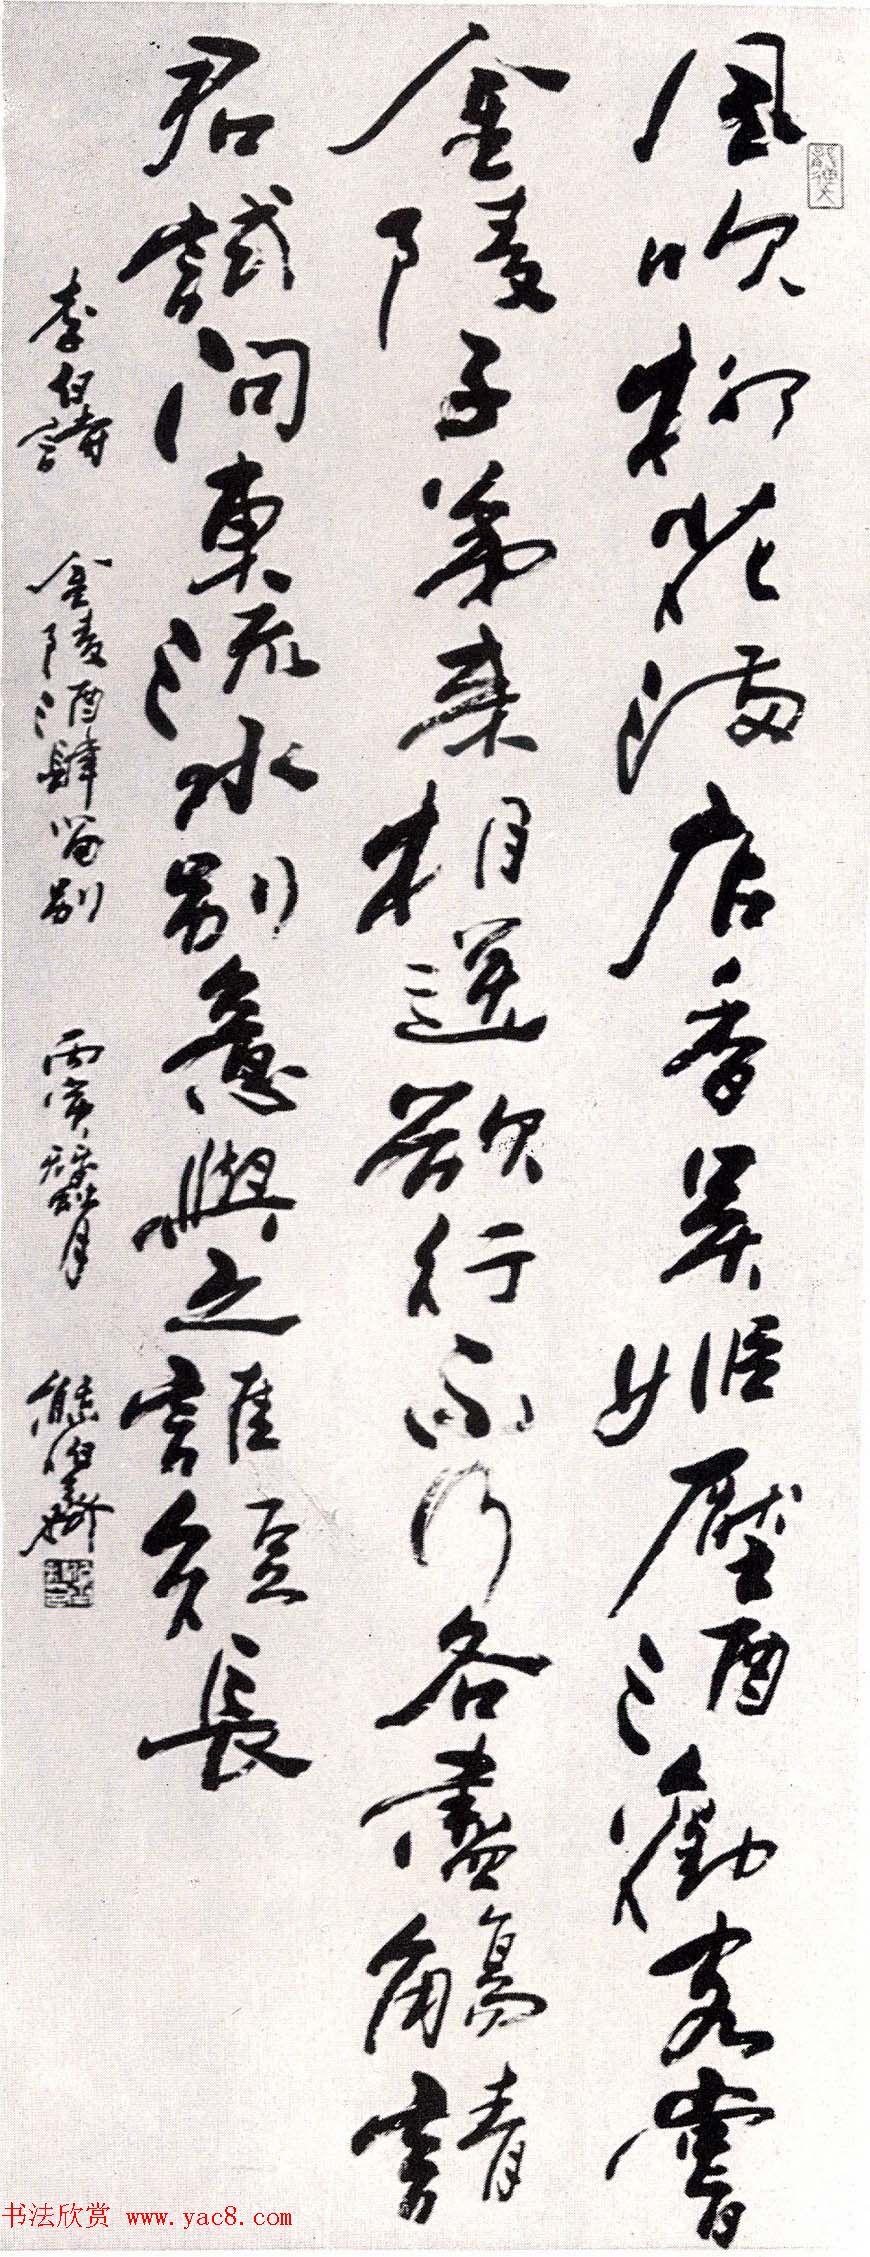 風吹柳花滿店香吴姬壓酒勸客嘗
金陵子弟來相送欲行不行各盡觴請
君試問東流水別意與之誰短長
李白詩 金陵酒肆留別 丙寅 月 熊伯齊
书法欣赏 www.yac8.com